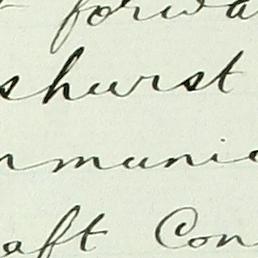 forwa
shurst
mmunic
aft Con